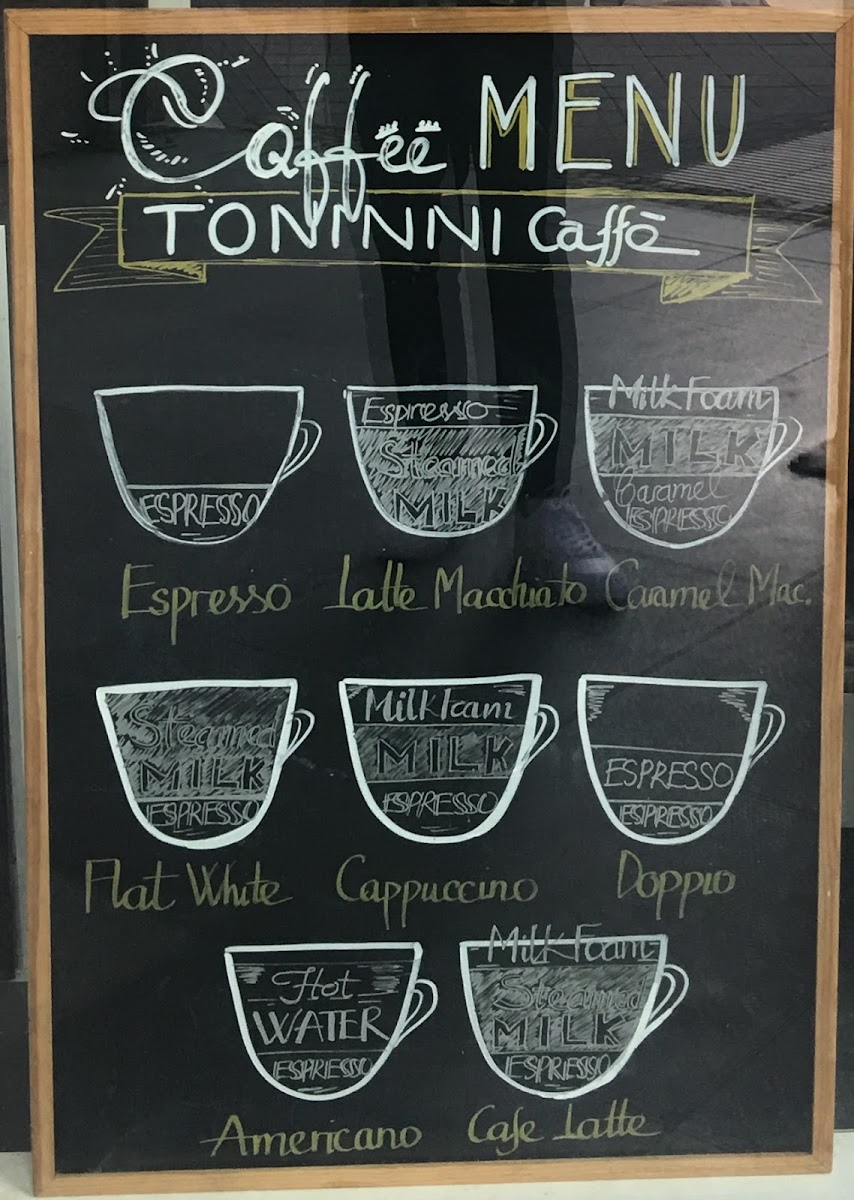 Caffëë MENU
TONINNI Caffè
ESPRESSO
Espresso
Espresso
Steamed
MILK
Latte Macchiato
Milk Foam
MILK
Caramel
ESPRESSO
Caramel Mac.
Steamed
MILK
ESPRESSO
Flat White
Milk Foam
MILK
ESPRESSO
Cappuccino
ESPRESSO
ESPRESSO
Doppio
Hot
WATER
ESPRESSO
Americano
Milk Foam
Steamed
MILK
ESPRESSO
Cafe Latte